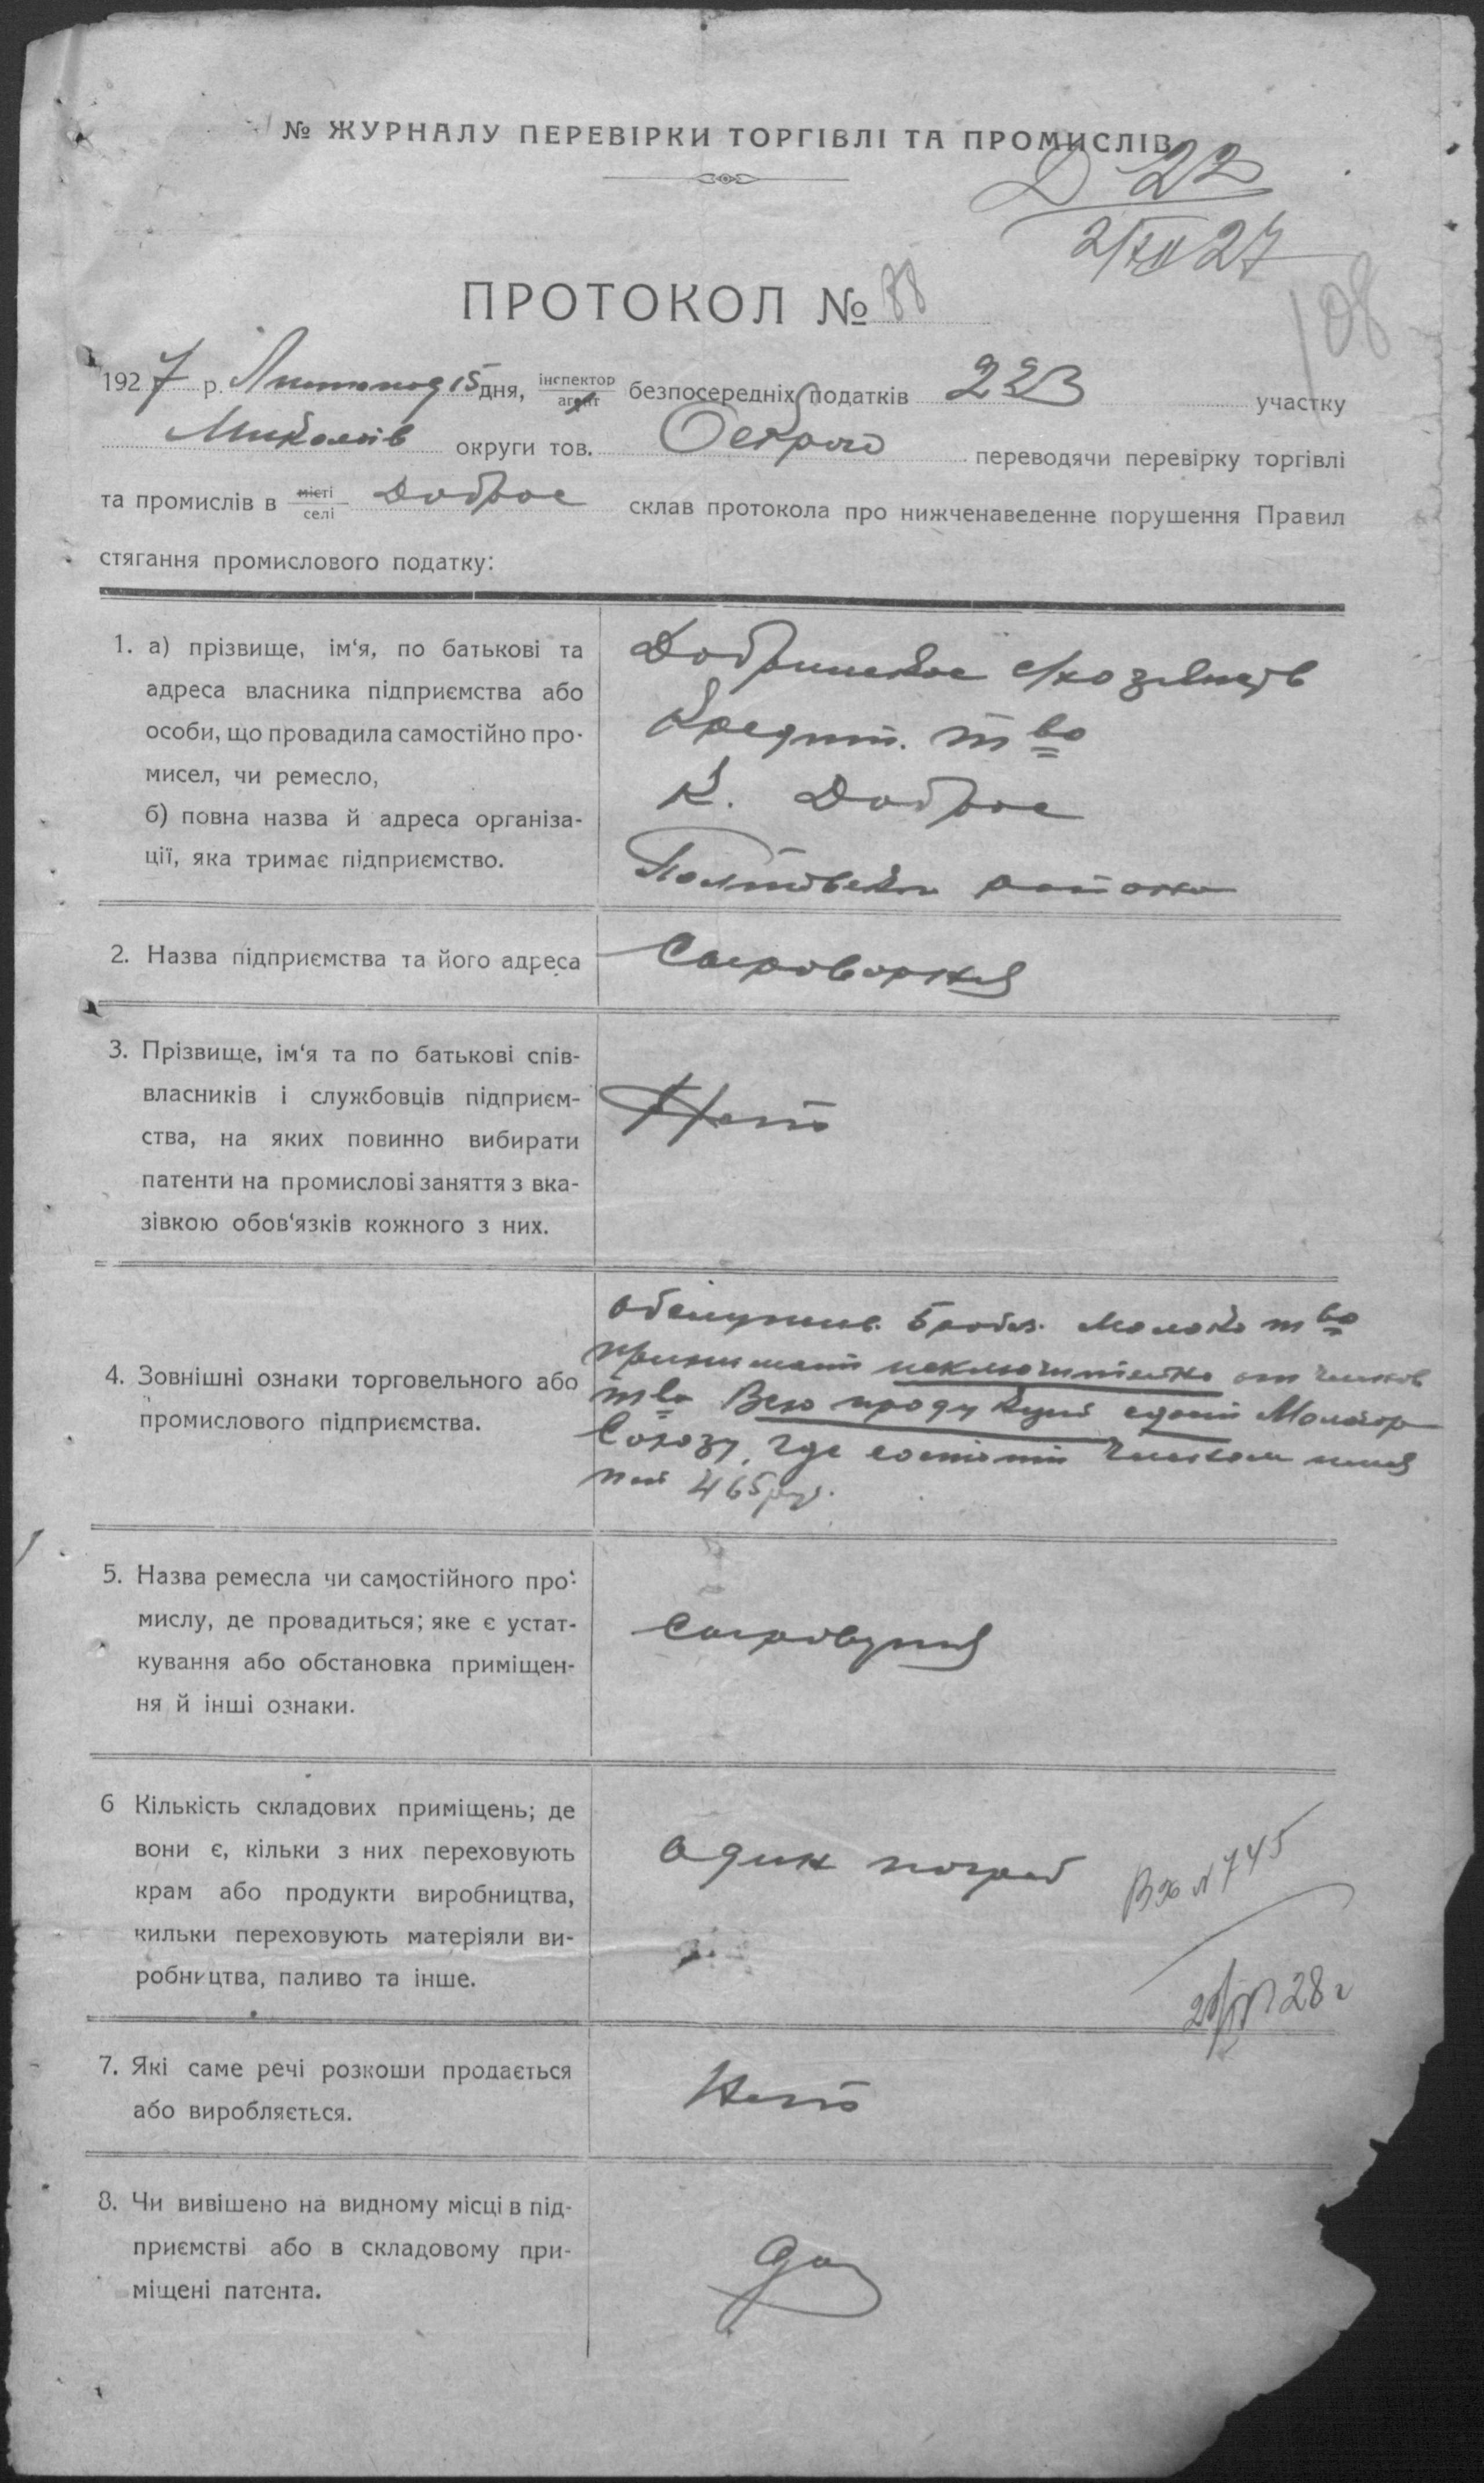 № ЖУРНАЛУ ПЕРЕВІРКИ ТОРГІВЛІ ТА ПРОМИСЛІВ
Д 22
2/XII 27
108
ПРОТОКОЛ № 88
1927 р. Листопад 15 дня, інспектор агент безпосередніх податків 223 участку
Миколаїв округи тов. переводячи перевірку торгівлі
та промислів в місті селі Доброе склав протокола про нижченаведенне порушення Правил
стягання промислового податку:
1. а) прізвище, ім‘я, по батькові та
адреса власника підприємства або
особи, що провадила самостійно про-
мисел, чи ремесло,
б) повна назва й адреса організа-
ції, яка тримає підприємство.
с/хозяйств
Кредит. тво
К. Доброе
района
2. Назва підприємства та його адреса
Сыроварня
3. Прізвище, ім‘я та по батькові спів-
власників і службовців підприєм-
ства, на яких повинно вибирати
патенти на промислові заняття з вка-
зівкою обов‘язків кожного з них.
Нет
4. Зовнішні ознаки торговельного або
промислового підприємства.
обслужив. 5 Молоко тво
принимает исключительно от членов
тва Всю продукцию сдает
Союзу, где состоит членом
пай 465 руб.
5. Назва ремесла чи самостійного про-
мислу, де провадиться; яке є устат-
кування або обстановка приміщен-
ня й інші ознаки.
6 Кількість складових приміщень; де
вони є, кільки з них переховують
крам або продукти виробництва,
кильки переховують матеріяли ви-
робництва, паливо та інше.
один погреб
Вх № 745
28 г
7. Які саме речі розкоши продається
або виробляється.
Нет
8. Чи вивішено на видному місці в під-
приємстві або в складовому при-
міщені патента.
да